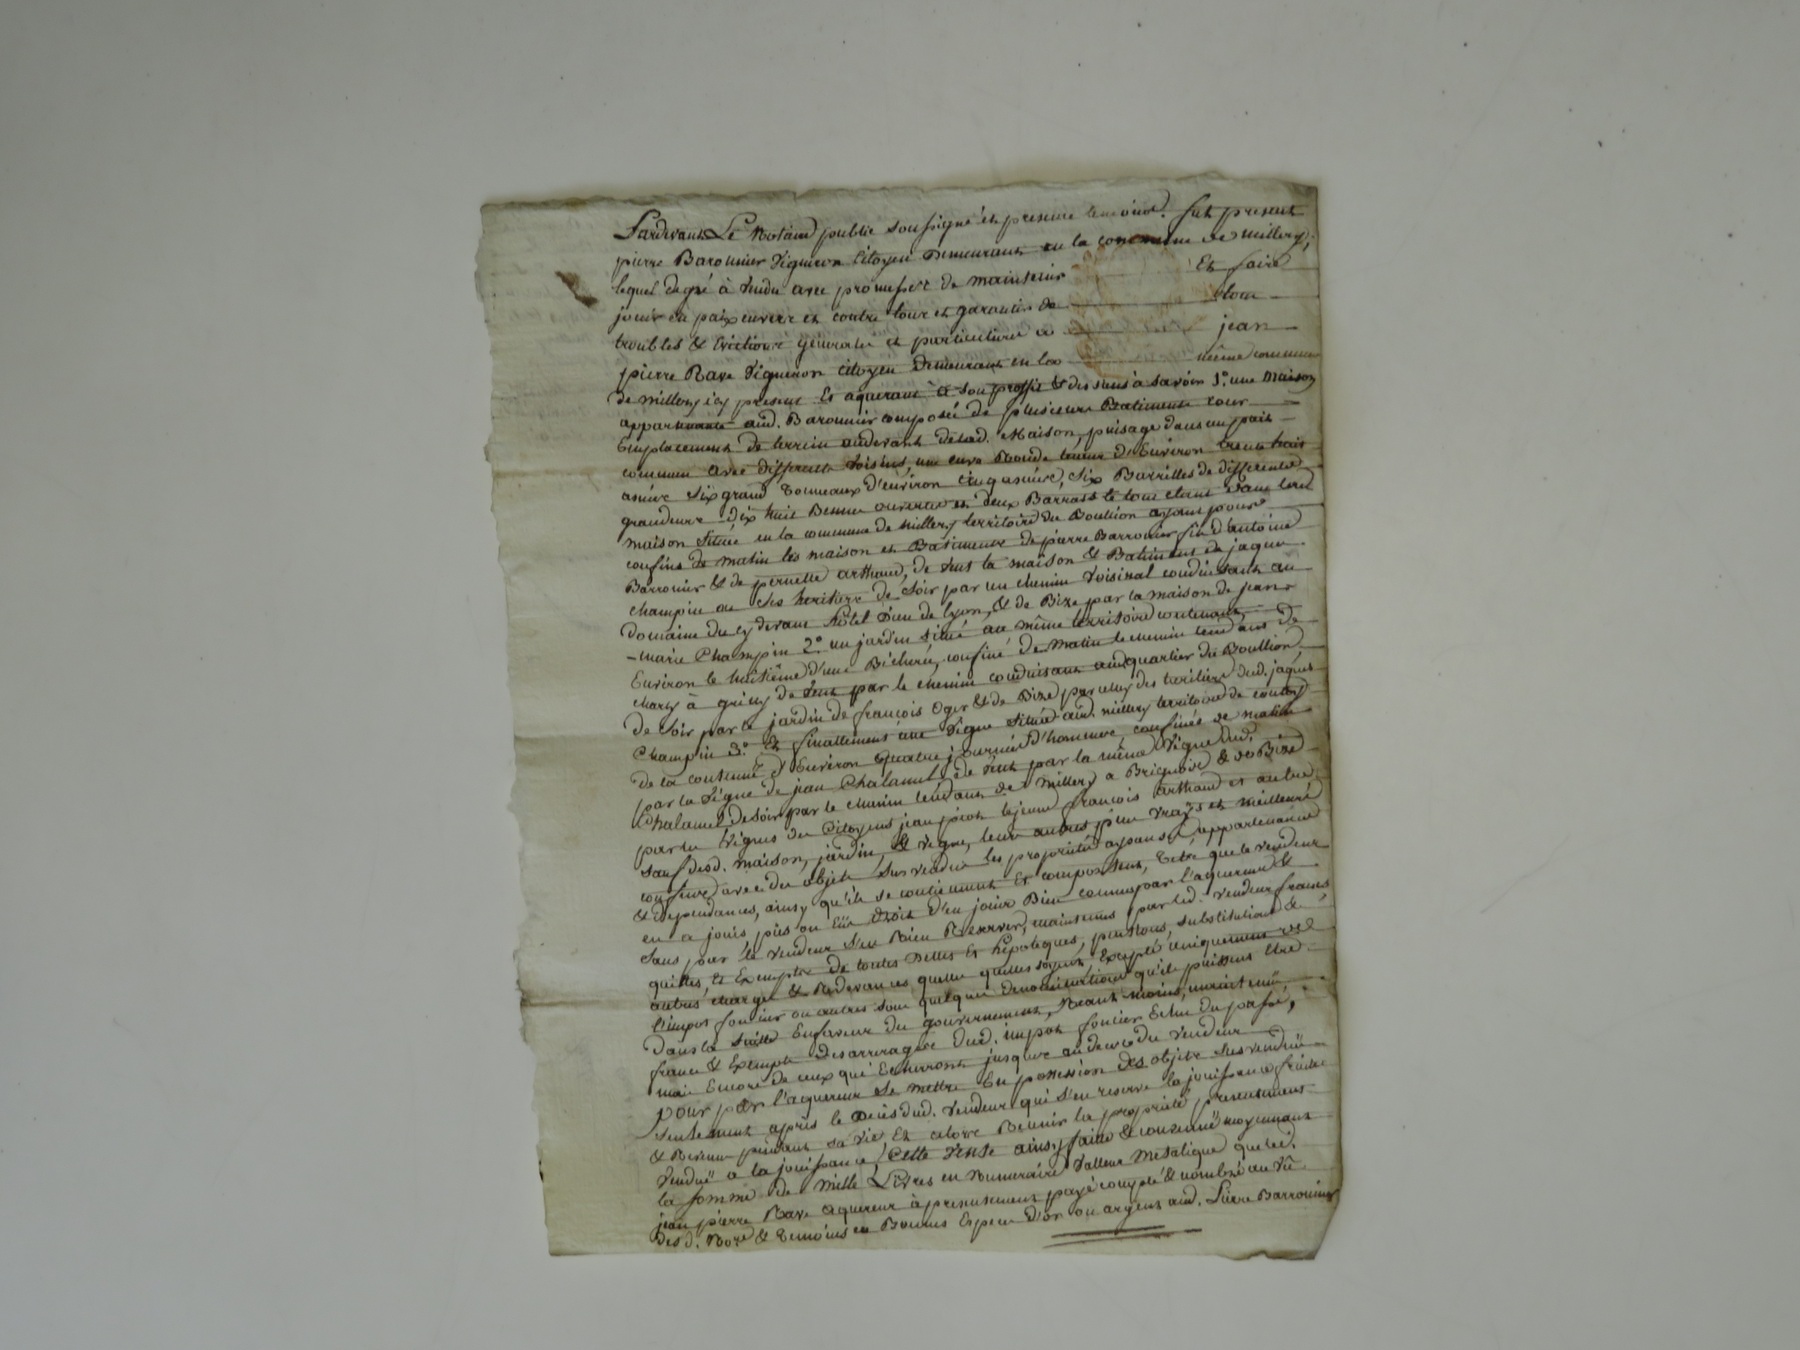 Pardevant Le Notaire public soussigné et présence temoins. fut present
pierre Barounier Vigneron Citoyen Demeurant en la commune de millery,
lequel de gré à vendu avec promesse de maintenir Et faire
jouir en paix envers et contre tous et garantir de tous
troubles & évictions générales et particulieres a jean
pierre Rave Vigneron citoyen Demeurant en la même commune
de millery icy present Et aquerant à son proffit & des siens à savoir 1.º une Maison
appartenante aud. Barounier composée de plusieurs Batiments cour
Emplacement de terrein audevant delad. Maison, puisage dans un puit
commun avec differents voisins, une cuve Ronde tenue d'Environ trente huit
asnées six grand Tonneaux d'environ cinq asnées, six Barrilles de differentes
grandeurs dix huit Bennes ouvertes et deux Barrass le tout étant dans lad.
maison située en la commune de millery territoire du Boullion ayant pour
confins de matin les maison et Batiments de pierre Barrounier fils d'antoine
Barrounier & de pernette arthaud, de vent la maison & Batiment de jaques
champin ou ses heritiers de soir par un chemin voisinal conduisant au
domaine du cy devant hôtel Dieu de Lyon, & de Bize par la maison de jean
marie Champin 2.º un jardin situé au même territoire contenant
Environ le huitième d'une Bicherée, confiné de matin le chemin tendant de
charly à grilly de vent par le chemin conduisant aud. quartier du Boullion,
de soir par le jardin de françois Oger & de Bize par celuy des heritiers dud. jaques
Champin 3.º Et finallement une vigne située aud. millery territoire de
de la contenue d'Environ quatre journées d'hommes, confinés de matin
par la vigne de jean Chalamel de vent par la même vigne dud.
Chalamel de soir par le chemin tendant de millery a Brignais & de Bize
par les vignes des Citoyens jean piot lejeune françois arthaud et autres
sauf desd. maison, jardin, & vigne, leurs autres plus vrays et meilleurs
confins avec des objets sus vendus les propriétés ayansés appartenances
& dependances, ainsy qu'ils se contiennent Et comportent, Et tels que le vendeur
en a jouis pûs ou dûs Droit d'en jouir Bien connus par l'aquereur &
sans par le vendeur s'en Rien Reserver, maintenus par led. vendeur francs
quittes, Et Exemptes de toutes dettes Et hipoteques, pensions, substitutions &
autres charges & Redevances quelles quelles soyent, Excepté uniquement de
l'impot foncier ou autres sous quelques denominations qu'ils puissent Etre
dans la suitte Enfaveur du gouvernement, Neant moins, maintenu
franc & Exempte des arrerages dud. impot foncier Echu du passé,
mais Encore de ceux qui Echerront jusques au deces du vendeur
pour par l'aquereur se mettre En possession des objets susvendus
seulement apres le deces dud. vendeur qui s'en reserve la jouissance fruits
& Revenus pendant sa vie, Et alors Reunir la propriété presentement
vendue a la jouissance, Cette vente ainsy faitte & convenue moyennant
la somme de mille Livres en Numeraire valleur Metalique que led.
jean pierre Rave aquereur à presentement payé compté & nombré au vû
desd. Nore & temoins en Bonnes Especes d'or ou argent aud. Pierre Barrounier